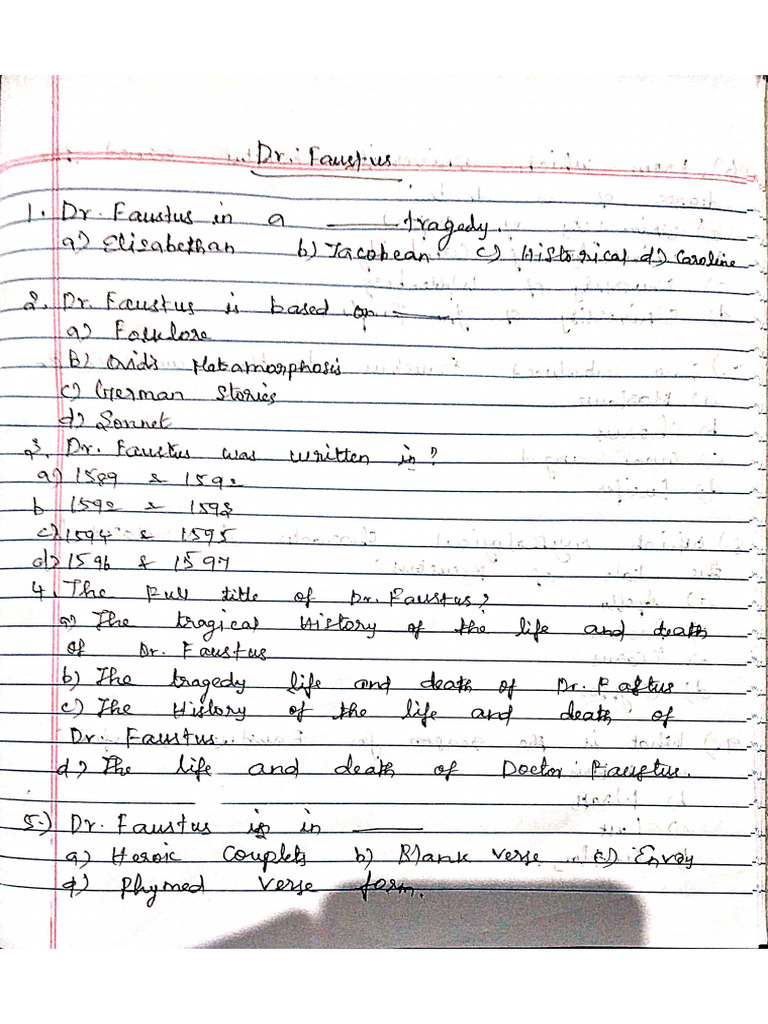 Dr. Faustus
1. Dr. Faustus in a ______ tragedy.
a) Elisabethan b) Jacobean c) Historical d) Caroline
2. Dr. Faustus is based on ______
a) Folklore
b) Ovid's Metamorphosis
c) German stories
d) Sonnet
3. Dr. Faustus was written in?
a) 1589 & 1592
b 1592 & 1593
c) 1594 & 1595
d) 1596 & 1597
4. The Full title of Dr. Faustus?
a) The tragical History of the life and death
of Dr. Faustus
b) The tragedy life and death of Dr. Faftus
c) The History of the life and death of
Dr. Faustus.
d) The life and death of Doctor Faustus.
5.) Dr. Faustus is in ______
a) Heroic Couplets b) Blank verse c) Envoy
d) Rhymed verse form.